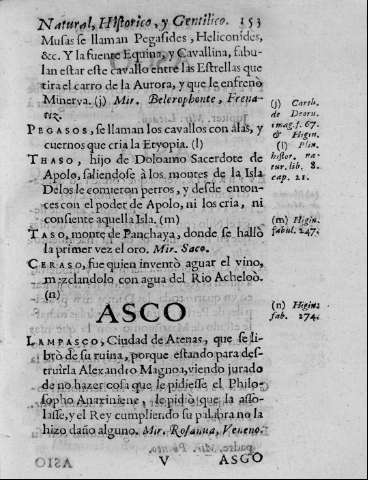 Natural, Historico, y Gentilico. 153
Musas se llaman Pegasides, Heliconides,
&c. Y la fuente Equina, y Cavallina, fabu-
lan estar este cavallo entre las Estrellas que
tira el carro de la Aurora, y que le enfrenò
Minerva. (j) Mir. Belerophonte, Frena-
tiz.
PEGASOS, se llaman los cavallos con alas, y
cuernos que cria la Etyopia. (l)
THASO, hijo de Doloamo Sacerdote de
Apolo, saliendose à los montes de la Isla
Delos le comieron perros, y desde enton-
ces con el poder de Apolo, ni los cria, ni
consiente aquella Isla. (m)
TASO, monte de Panchaya, donde se hallò
la primer vez el oro. Mir. Saco.
CERASO, fue quien inventò aguar el vino,
mezclandolo con agua del Rio Acheloò.
(n)
(j) Carth.
de Deoru.
imag. f. 67.
& Higin.
(l) Plin.
histor. na-
tur. lib. 8.
cap. 21.
(m) Higin.
fabul. 247.
(n) Higin.
fab. 274.
ASCO
LAMPASCO, Ciudad de Atenas, que se li-
brò de su ruina, porque estando para des-
truirla Alexandro Magno, viendo jurado
de no hazer cosa que le pidiesse el Philo-
sopho Anaximene, le pidiò que la asso-
lasse, y el Rey cumpliendo su palabra no la
hizo daño alguno. Mir. Rosanua, Veneno.
V ASCO